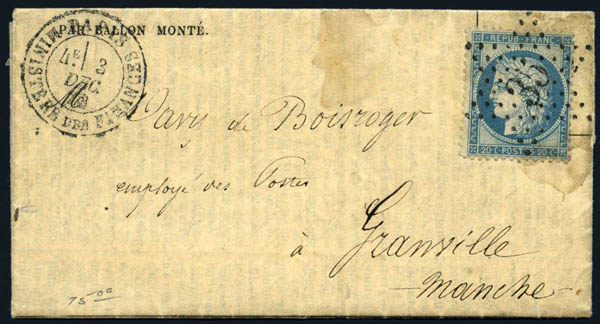 PAR BALLON MONTÉ.
PARIS
MINISTÈRE DES FINANCES
4E 3
DÉC.
REPUB. FRANC.
20 · C · POSTE · 20 · C
Davy de Boisroger
employé des Postes
à Granville
Manche
75 00